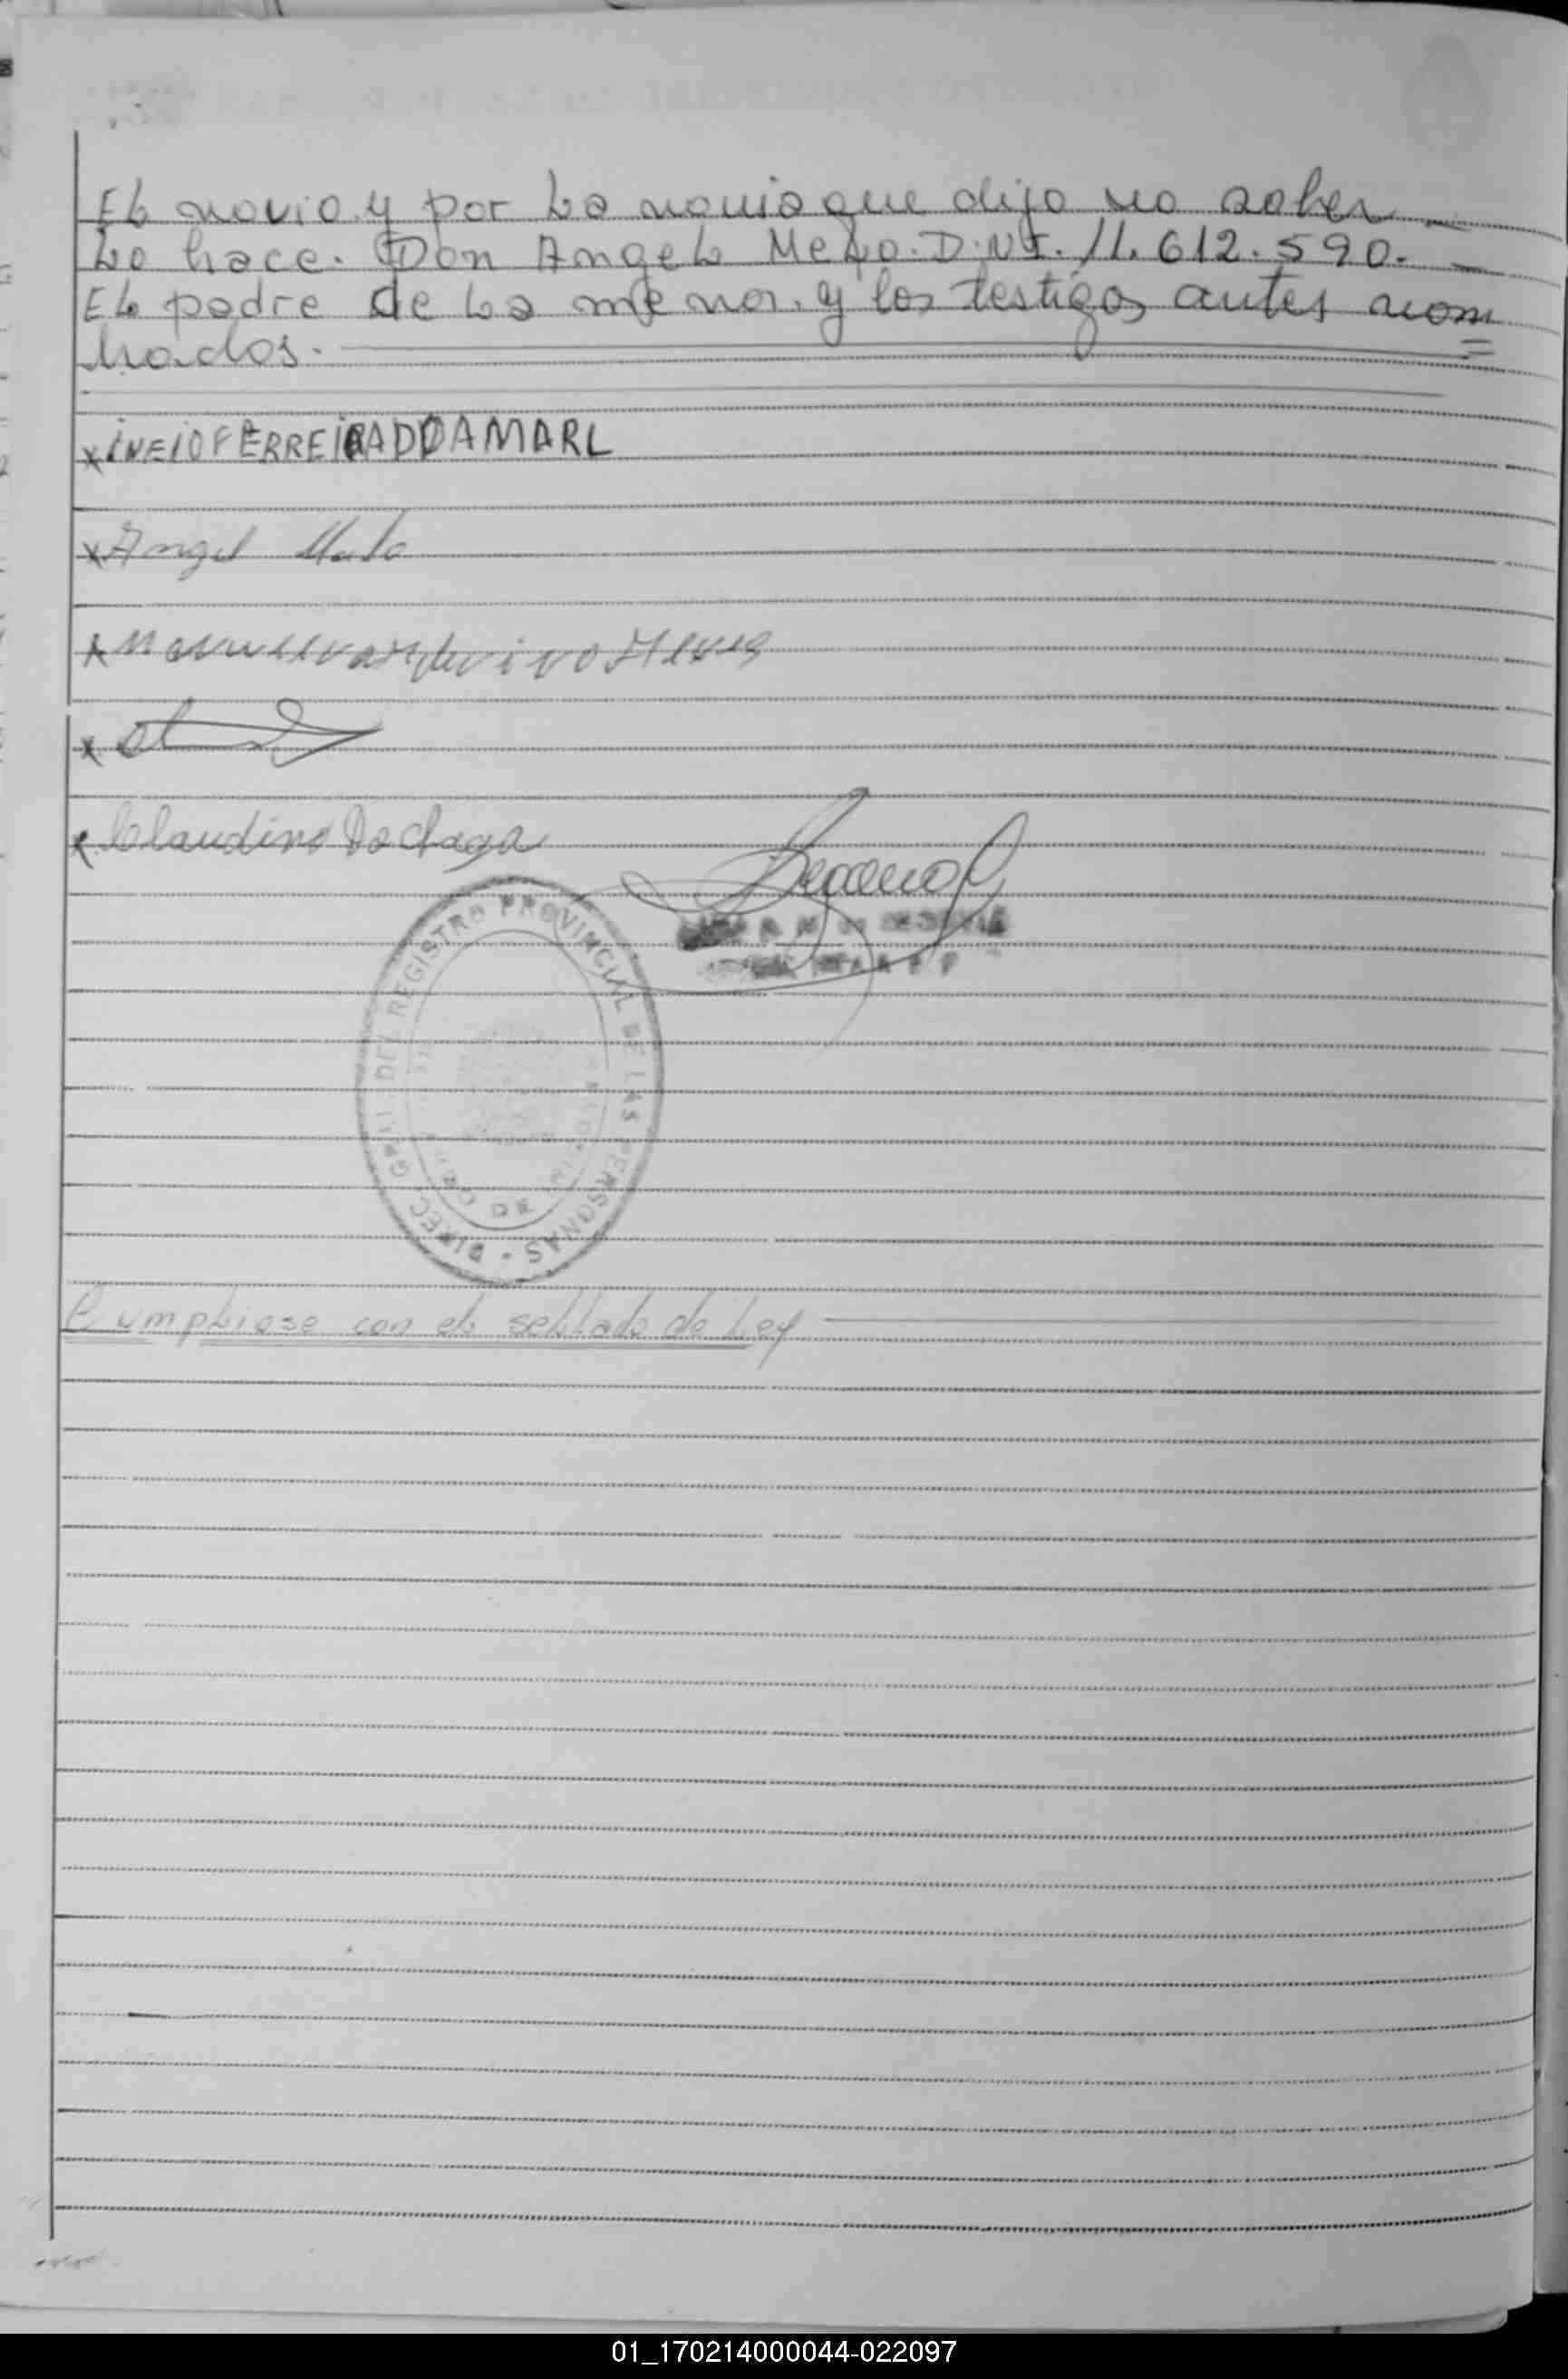 El novio y por la novia que dijo no saber
Lo hace. Don Angel Melo. D.N.I. 11.612.590.
El padre de la menor. y los testigos antes nom
brados.
x INEIO FERREIRADOAMARL
x Angel Melo
x
x
x Claudino Da Chaga
DIREC. GRAL. DEL REGISTRO PROVINCIAL DE LAS PERSONAS
Cumpliose con el sellado de Ley
01_170214000044-022097